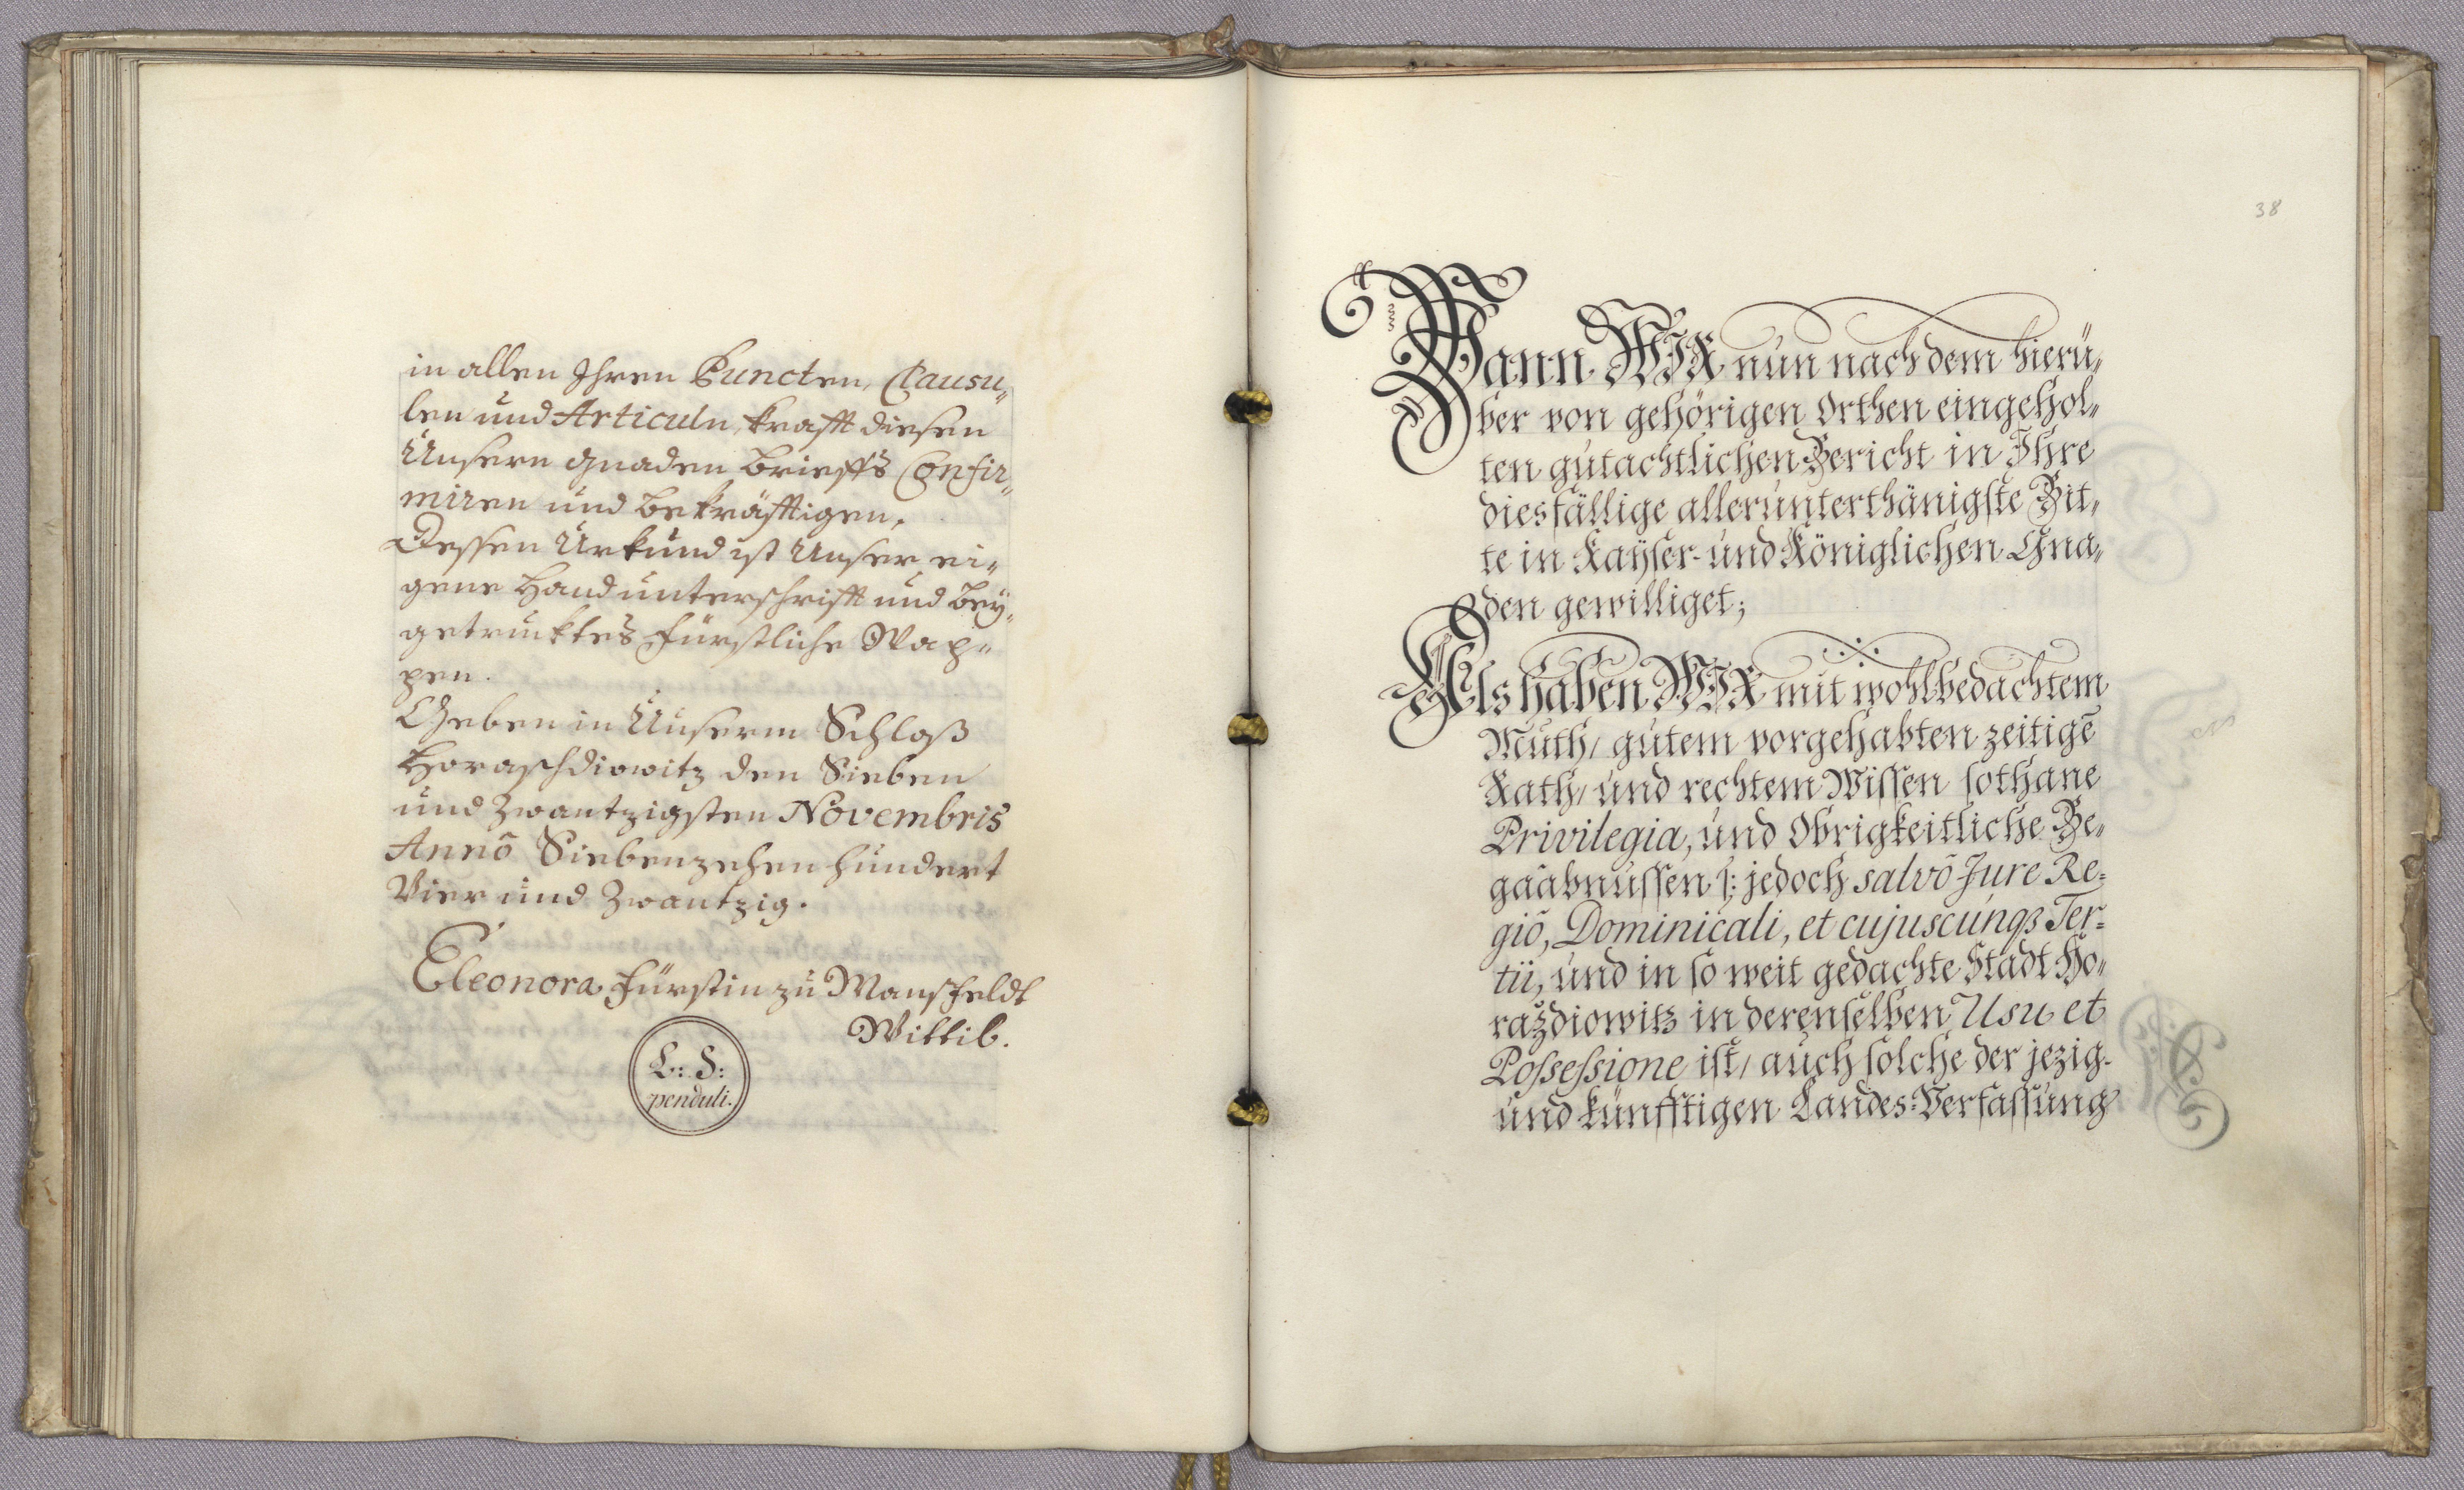 in allen Ihren Puncten, Clausu„
len und Articuln, krafft diesen
Unsern Gnaden Brieffs Confir„
miren und bekräfftigen.
Dessen Urkund ist Unser ei„
gene Handunterschrifft und bey„
getrucktes Fürstliche Wap„
pen.
Geben in Unserm Schloß
Horaschdiowitz den Sieben
und Zwantzigsten Novembris
Annō Siebenzehen hundert
Vier und Zwantzig.
Eleonora Fürstin zu Mansfeldt
Wittib.
L: S:
penduli.
38
Wann WIR nun nach dem hierü„
ber von gehörigen Orthen eingehol„
ten gutachtlichen Bericht in Ihre
diesfällige allerunterthänigste Bit„
te in Kayser- und Königlichen Gna„
den gewilliget;
Als haben WIR mit wohlbedachtem
Muth, gutem vorgehabten zeitigē
Rath, und rechtem Wissen sothane
Privilegia, und Obrigkeitliche Be„
gaabnussen /: jedoch salvō Jure Re=
giō, Dominicali, et cujuscunqȝ Ter=
tii, und in so weit gedachte Stadt Ho„
raždiowitz in derenselben Usu et
Possessione ist, auch solche der jezig-
und künfftigen Landes-Verfassung